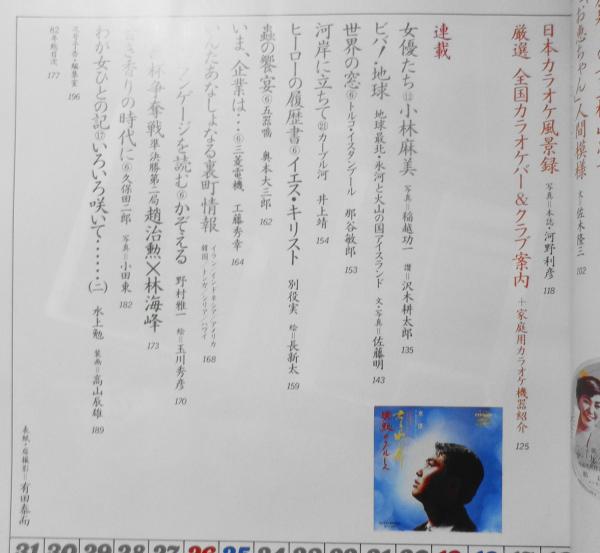 お恵ちゃん」人間模様 文=佐木隆三 102
日本カラオケ風景録 写真=本誌・河野利彦 118
厳選 全国カラオケバー&クラブ案内 +家庭用カラオケ機器紹介 125
連載
女優たち⑫小林麻美 写真=稲越功一 譜=沢木耕太郎 135
ビバ!地球 地球最北・氷河と火山の国アイスランド 文・写真=佐藤明 143
世界の窓⑥トルコ・イスタンブール 那谷敏郎 153
河岸に立ちて㉑カーブル河 井上靖 154
ヒーローの履歴書⑥イエス・キリスト 別役実 絵=長新太 159
蟲の饗宴⑥五器噛 奥本大三郎 162
いま、企業は…⑥三菱電機 工藤秀幸 164
んたあなしょなる裏町情報 イラン・インドネシア・アメリカ 韓国・トンガ・シリア・ハワイ 168
ンゲージを読む⑥かぞえる 野村雅一 絵=玉川秀彦 170
杯争奪戦 準決勝第二局 趙治勲×林海峰 173
き香りの時代に⑥久保田二郎 写真=小田東 182
わが女ひとの記⑰いろいろ咲いて……(二) 水上勉 装画=高山辰雄 189
次号予告・編集室 196
82年総目次 177
表紙・扉撮影=有田泰而
31 30 29 28 27 26 25 24 23 22 21 20 19